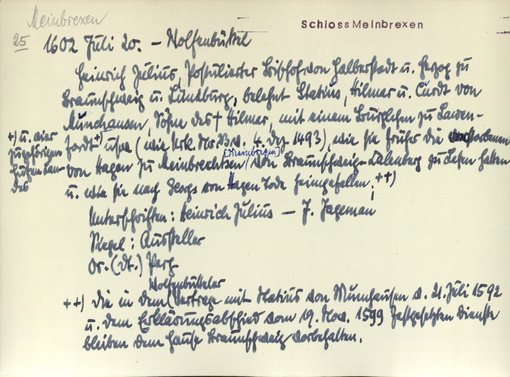 Meinbrexen
Schloss Meinbrexen
25
1602 Juli 20. – Wolfenbüttel
Heinrich Julius, Postulierter Bischof von Halberstadt u. Herzog zu
Braunschweig u. Lüneburg, belehnt Statius, Hilmar u. Cürdt von
Münchausen, Söhne des † Hilmar, mit einem Burglehen zu Lauen-
förde usw (wie Urk. des 4. Dez. 1493), wie sie früher die
von Hagen zu Meinbrechtsen (Meinbrexen) von Braunschweig-Calenberg zu Lehen hatten
u. wie sie nach Georgs von Hagen Tode heimgefallen. ++)
+) u. vier
zugehörigen
Unterschriften: Heinrich Julius – J. Jageman
Siegel: Aussteller
Or. (dt.) Perg.
++) Die in dem Wolfenbüteler Vertrage mit Statius von Münnhausen v. 21. Juli 1592
u. dem Erklärungsabschied vom 19. Nov. 1599 festgesetzten Dienste
bleiben dem Hause Braunschweig vorbehalten.